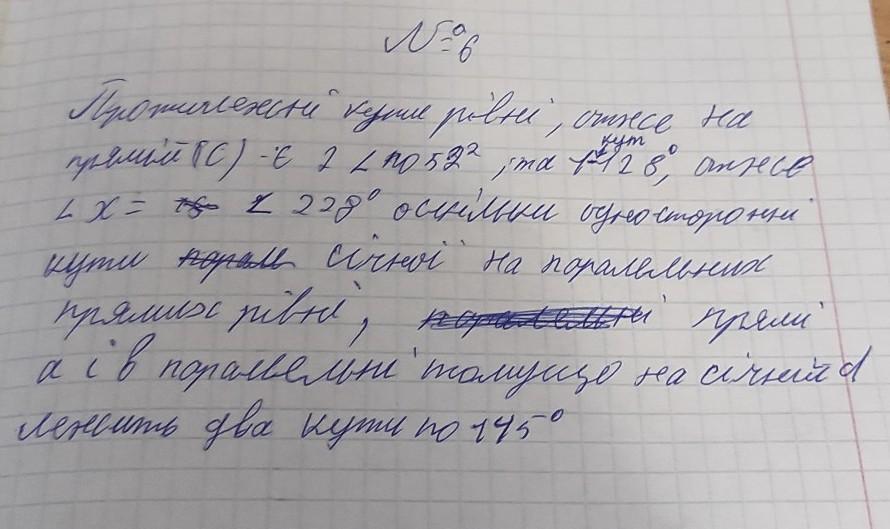 №6
Протилежні кути рівні, отже на
прямій (С) - є 2 ∠ по 52°, та 1-128°, отже
кут
∠ X = ∠ 228° оскільки односторонні
кути січної на паралельних
прямих рівні, прямі
а і в паралельні томущо на січній d
лежить два кути по 145°